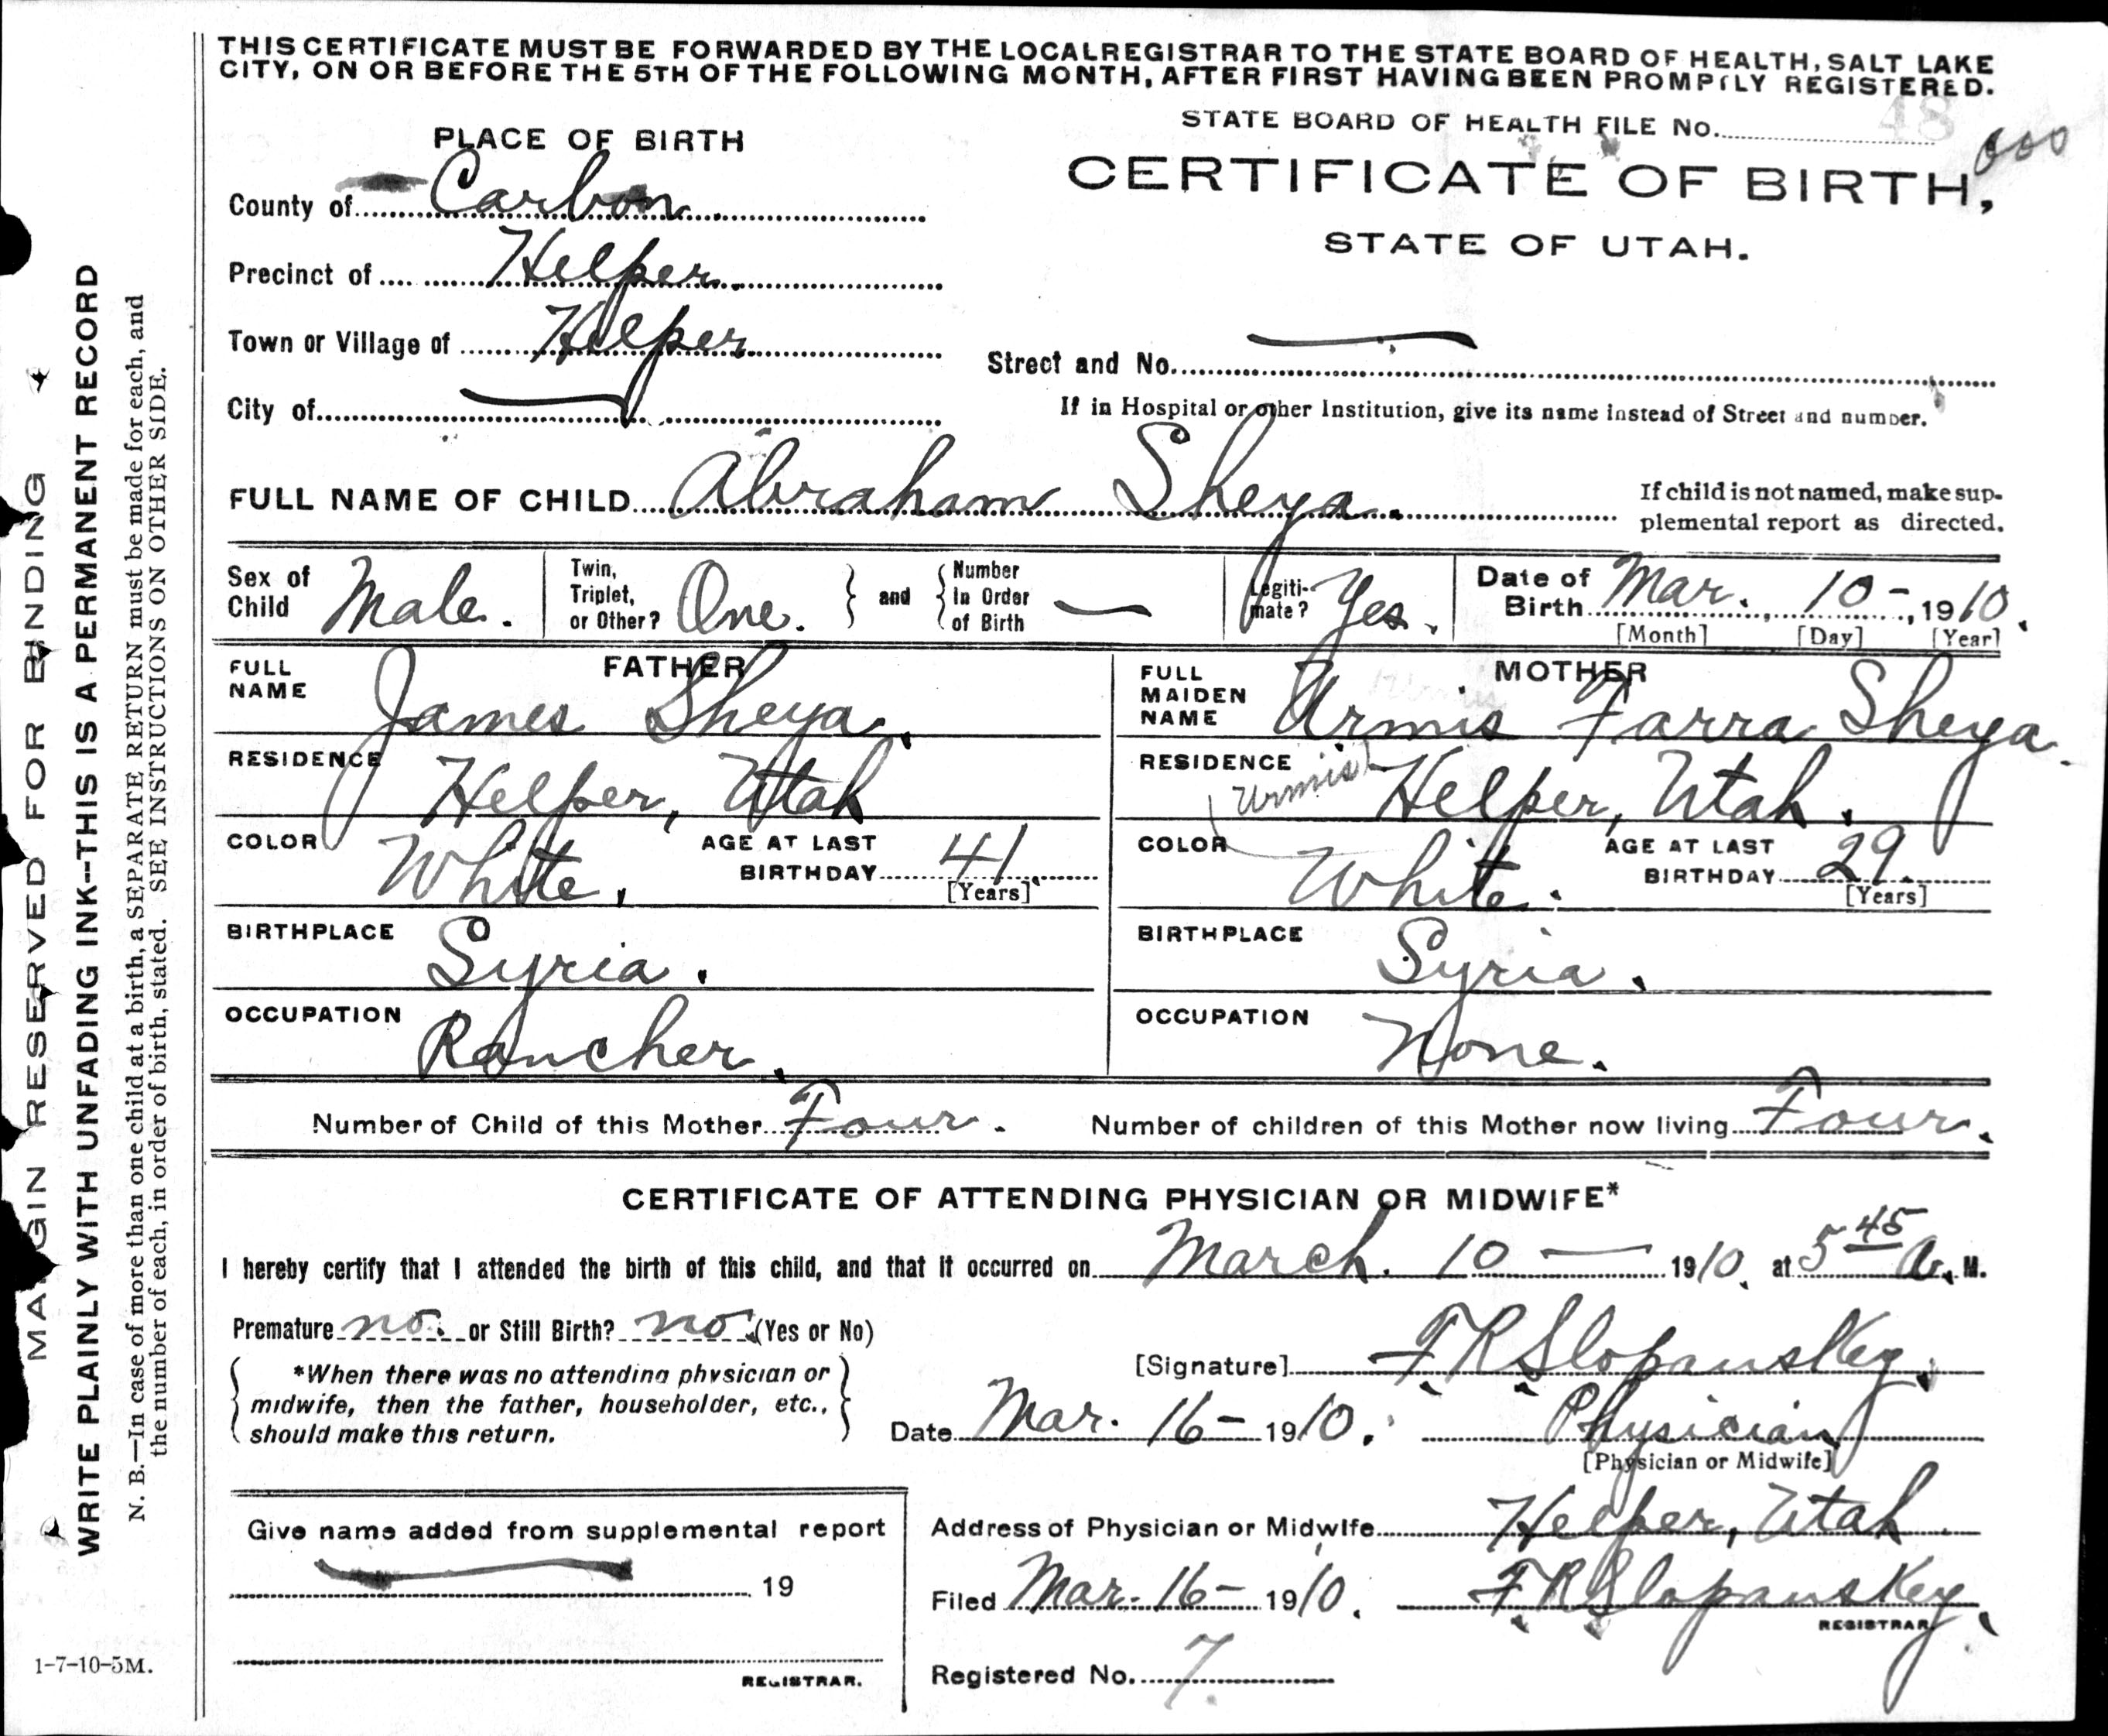 THIS CERTIFICATE MUST BE FORWARDED BY THE LOCAL REGISTRAR TO THE STATE BOARD OF HEALTH, SALT LAKE
CITY, ON OR BEFORE THE 5TH OF THE FOLLOWING MONTH, AFTER FIRST HAVING BEEN PROMPTLY REGISTERED.
STATE BOARD OF HEALTH FILE No. 48
000
PLACE OF BIRTH
CERTIFICATE OF BIRTH,
STATE OF UTAH.
County of Carbon
Precinct of Helper
Town or Village of Helper
Street and No. —
City of —
If in Hospital or other Institution, give its name instead of Street and number.
FULL NAME OF CHILD Abraham Sheya.
If child is not named, make sup-
plemental report as directed.
Sex of Child Male.
Twin, Triplet, or Other? One.
and
Number In Order of Birth —
Legiti-mate? Yes.
Date of Birth Mar. 10-, 1910.
[Month] [Day] [Year]
FATHER
FULL NAME James Sheya.
RESIDENCE Helper, Utah
COLOR White.
AGE AT LAST BIRTHDAY 41.
[Years]
BIRTHPLACE Syria.
OCCUPATION Rancher.
MOTHER
FULL MAIDEN NAME Urmis Farra Sheya.
Urmis
RESIDENCE Helper, Utah.
COLOR White.
AGE AT LAST BIRTHDAY 29.
[Years]
BIRTHPLACE Syria.
OCCUPATION None.
Number of Child of this Mother Four.
Number of children of this Mother now living Four.
CERTIFICATE OF ATTENDING PHYSICIAN OR MIDWIFE*
I hereby certify that I attended the birth of this child, and that it occurred on March. 10 — 1910. at 5 45 A. M.
Premature no. or Still Birth? no. (Yes or No)
*When there was no attending physician or
midwife, then the father, householder, etc.,
should make this return.
[Signature] F. R. Slopanskey.
Date Mar. 16- 1910. Physician
[Physician or Midwife]
Give name added from supplemental report
19
REGISTRAR.
Address of Physician or Midwife Helper, Utah
Filed Mar. 16- 1910. F. R. Slopanskey.
REGISTRAR
Registered No. 7.
MARGIN RESERVED FOR BINDING
WRITE PLAINLY WITH UNFADING INK--THIS IS A PERMANENT RECORD
N. B.—In case of more than one child at a birth, a SEPARATE RETURN must be made for each, and
the number of each, in order of birth, stated. SEE INSTRUCTIONS ON OTHER SIDE.
1-7-10-5M.